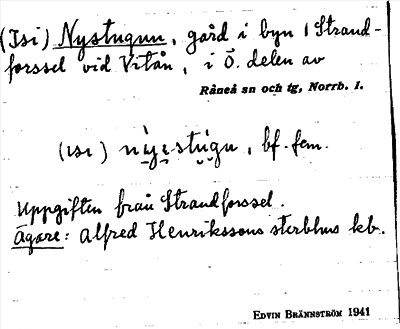 (Isi) Nystugun, gård i byn i Strand-
forssel vid Vitån, i Ö. delen av
Råneå sn och tg, Norrb. l.
(ısı) nyestúgu, bf. fem.
Uppgiften från Strandforssel.
Ägare: Alfred Henrikssons sterbhus kb.
EDVIN BRÄNNSTRÖM 1941